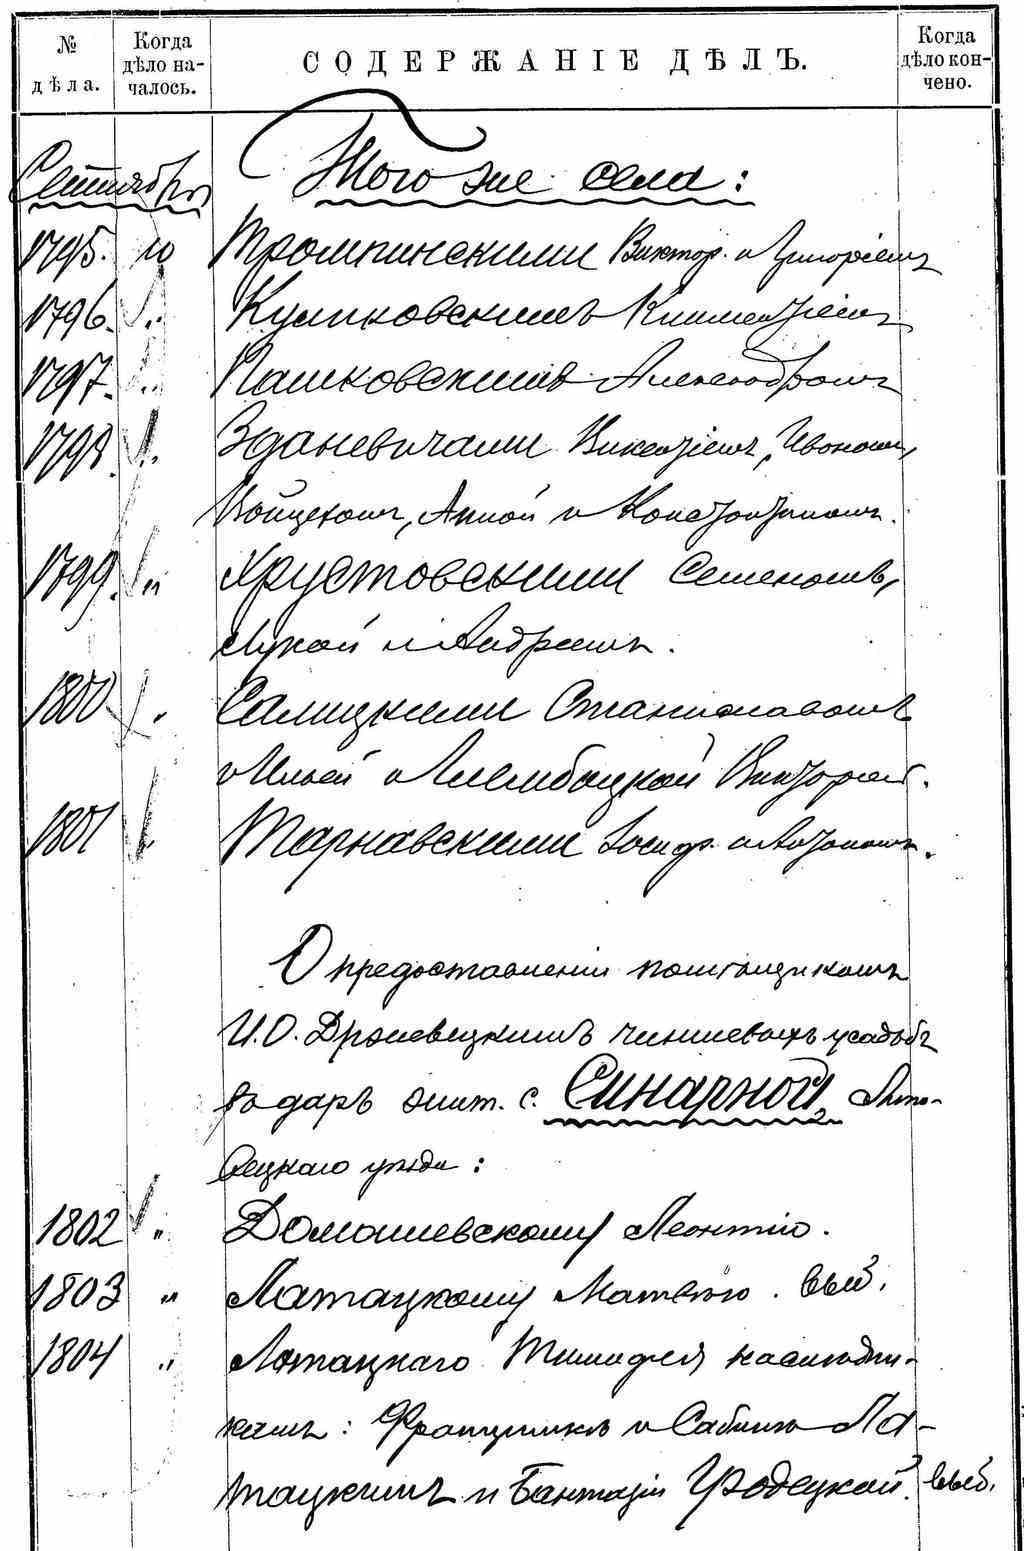 № дѣла. Когда дѣло началось. СОДЕРЖАНІЕ ДѢЛЪ. Когда дѣло кончено.
Сентября Того же села:
1795. 10 Тромпинскими Виктор. и Григоріемъ
1796. " Куликовскимъ Климентіемъ
1797. " Пашковскимъ Александромъ
1798. " Здановичами Викентіемъ, Ивономъ,
Войцехомъ, Анной и Константиномъ.
1799. " Хрустовскими Семеномъ,
Лукой и Андреемъ.
1800 " Салицкими Станиславомъ
и Ильей и Лембицкой Викторіей.
1801 " Тарнавскими Іосиф. и Антономъ.
О предоставленіи помѣщикомъ
И. О. Држевецкимъ чиншевыхъ усадьбъ
въ даръ жит. с. Синарной, Липо-
вецкаго уѣзда:
1802 " Домашевскому Леонтію.
1803 " Латацкому Матвѣю. выб.
1804 " Латацкаго Тимофея наслѣдни-
камъ: Францишкѣ и Сабинѣ Ла-
тацкимъ и Гродецкой. выб.